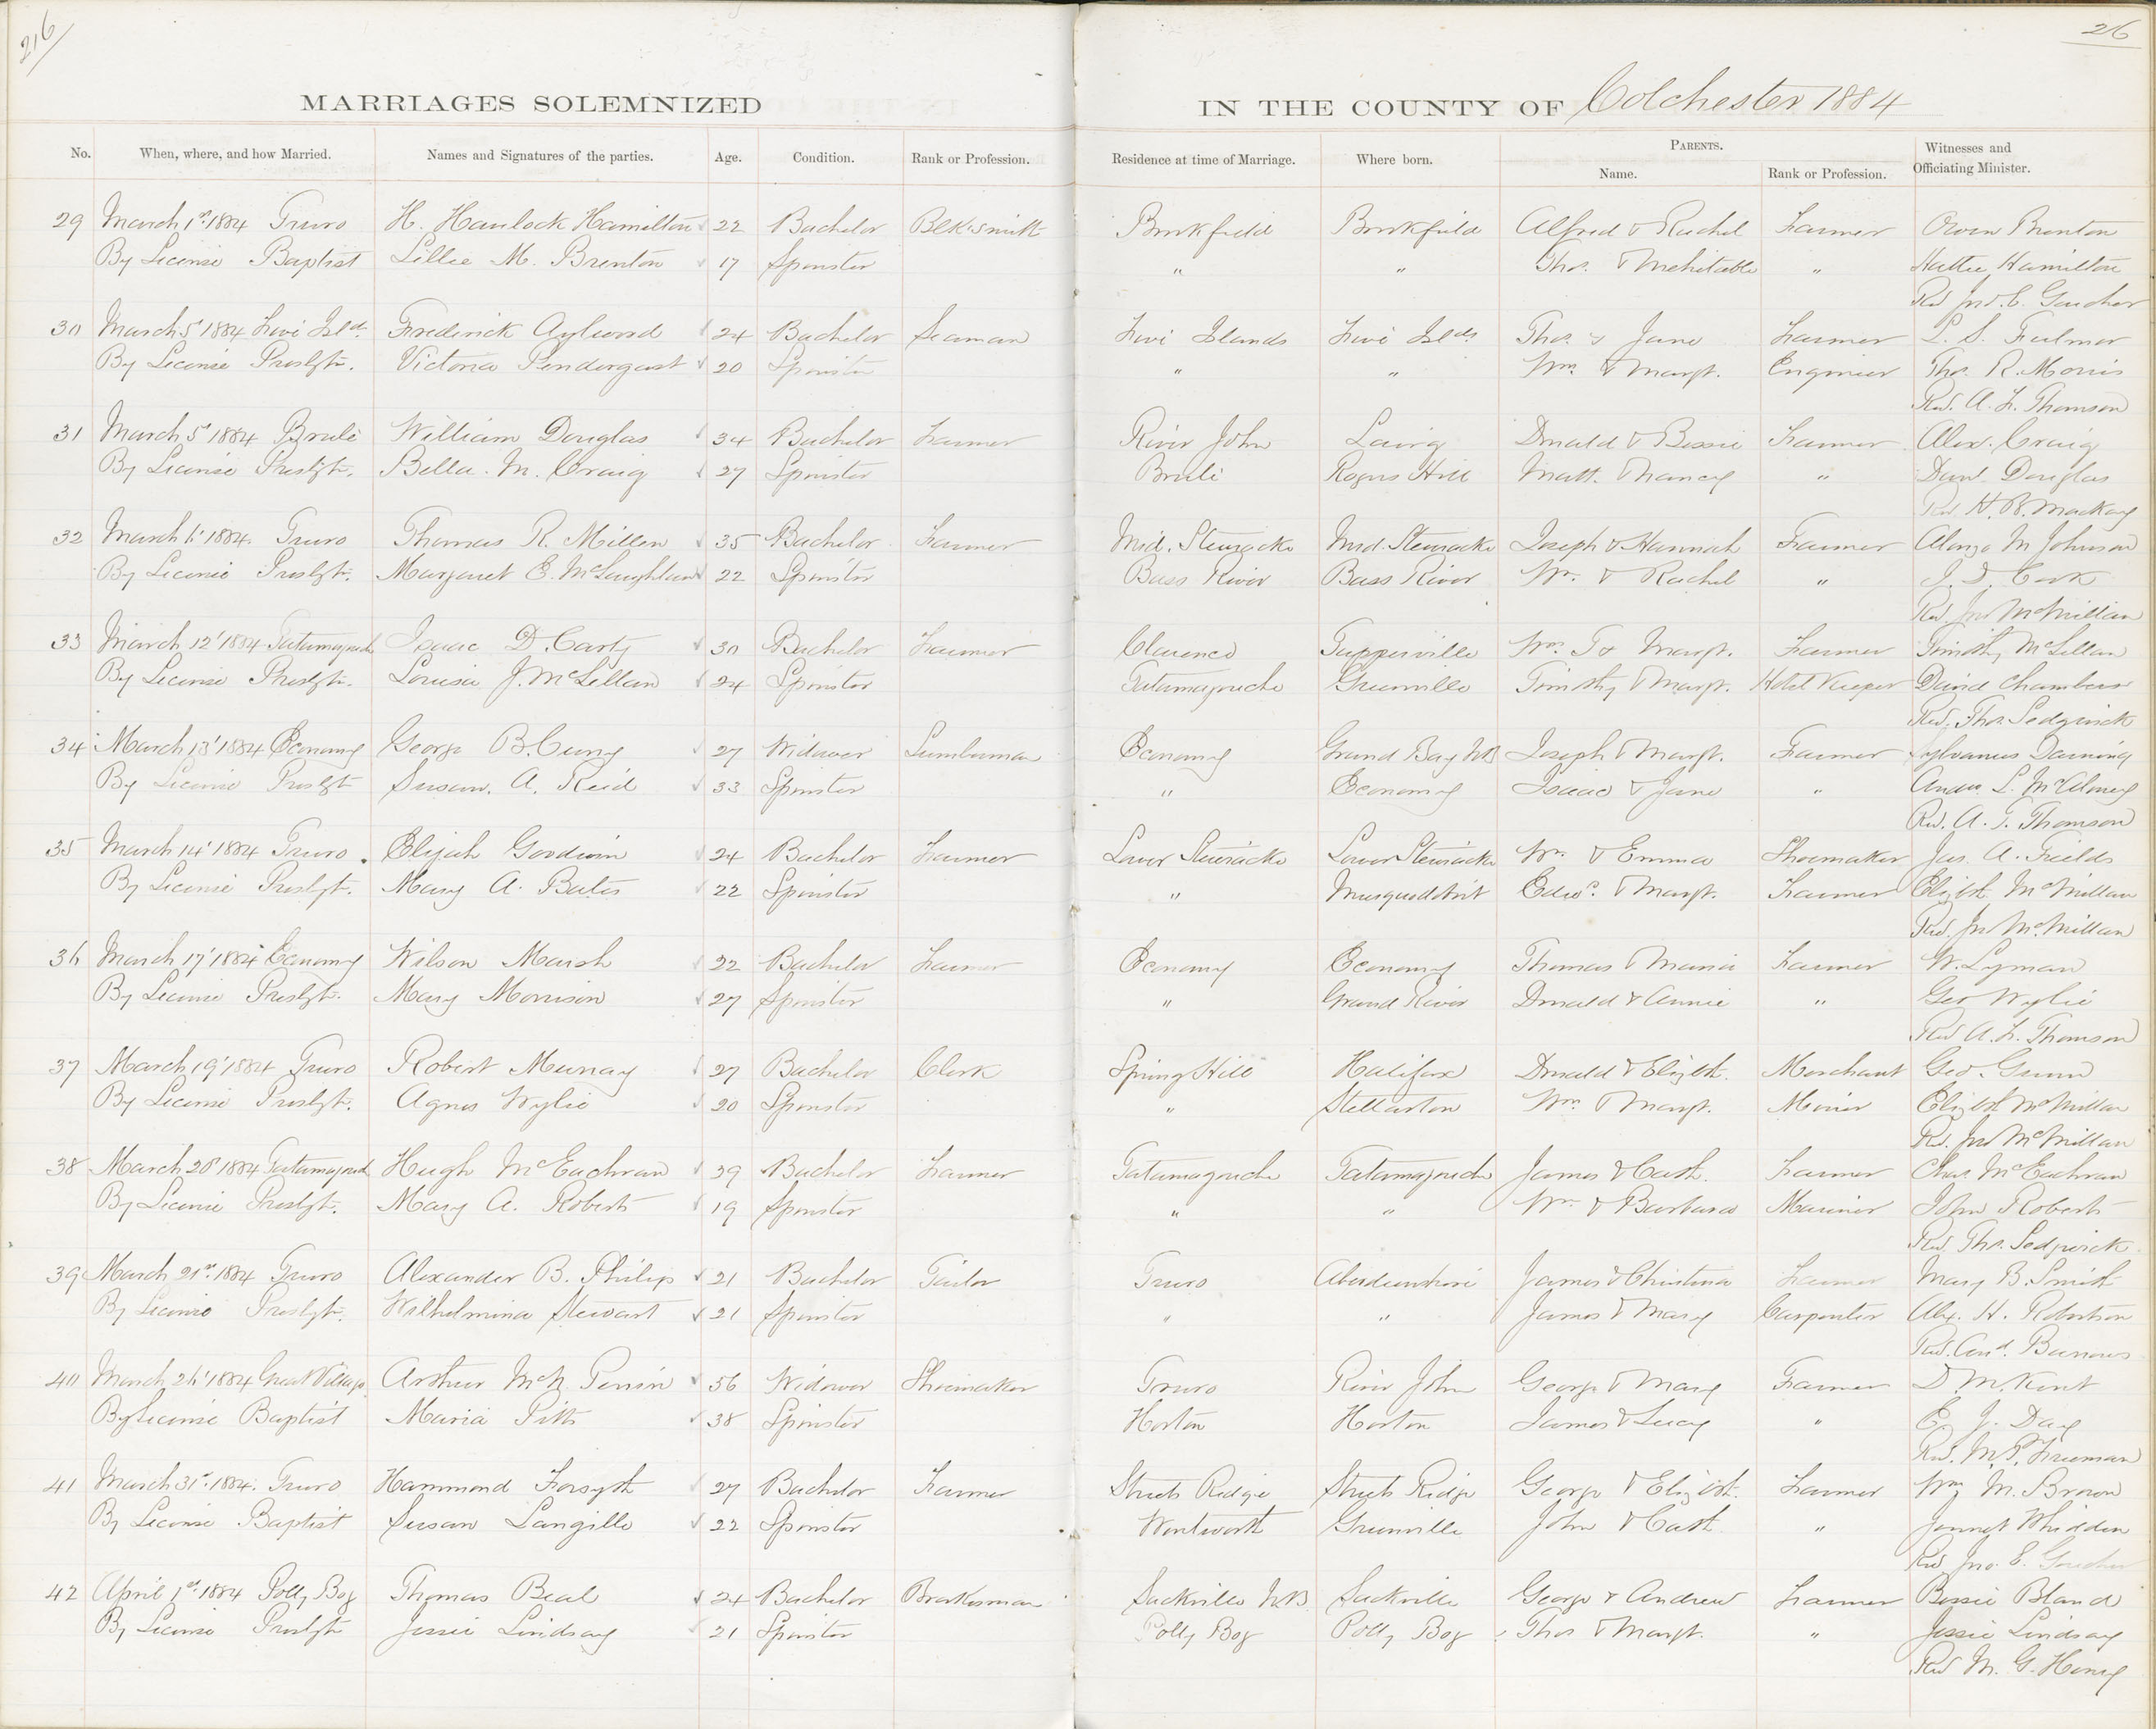 216
26
MARRIAGES SOLEMNIZED IN THE COUNTY OF Colchester 1884
No. When, where, and how Married. Names and Signatures of the parties. Age. Condition. Rank or Profession. Residence at time of Marriage. Where born. PARENTS. Witnesses and Officiating Minister.
Name. Rank or Profession.
29 March 1st 1884 Truro H. Havlock Hamilton 22 Bachelor Blksmith Brookfield Brookfield Alfred & Rachel Farmer Owen Brenton
By License Baptist Lillie M. Brenton 17 Spinster " " Thos. & Mehitable " Hattie Hamilton
Rev Jno. E. Goucher
30 March 5' 1884 Five Isld. Frederick Aylward 24 Bachelor Seaman Five Islands Five Islds Thos & Jane Farmer P. S. Fulmer
By License Presbytn. Victoria Pendergast 20 Spinster " " Wm. & Margt. Engineer Thos. R. Morris
Rev. A. F. Thomson
31 March 5' 1884 Brulé William Douglas 34 Bachelor Farmer River John Donald & Bessie Farmer Alex. Craig
By License Presbytn. Bella. M. Craig 27 Spinster Brulé Rogers Hill Matt. & Nancy " Davd. Douglas
Rev. H. B. Mackay
32 March 6' 1884. Truro Thomas R. Miller 35 Bachelor Farmer Mid. Stewiacke Mid. Stewiacke Joseph & Hannah Farmer Alonzo M Johnson
By License Presbytn. Margaret E. McLaughlin 22 Spinster Bass River Bass River Wm. & Rachel "
Rev. Jno McMillan
33 March 12' 1884 Tatamagouch Isaac D. Carty 30 Bachelor Farmer Clarence Tupperville Wm. T & Margt. Farmer Timothy McLellan
By License Presbytn. Louisa J. McLellan 24 Spinster Tatamagouche Greenville Timothy & Margt. Hotel Keeper David Chambers
Rev. Thos. Sedgwick
34 March 13' 1884 Economy George B. 27 Widower Lumberman Economy Grand Bay NB Joseph & Margt. Farmer Sylvanus
By License Presbyt Susan. A. Reid 33 Spinster " Economy Isaac & Jane " Andw. L. McAloney
Rev. A. F. Thomson
35 March 14' 1884 Truro. Elijah Goodwin 24 Bachelor Farmer Lower Stewiacke Lower Stewiacke Wm. & Emma Shoemaker Jas. A. Fields
By License Presbyt. Mary A. Bates 22 Spinster " Musquodobit Edwd. & Margt. Farmer Elizbth McMillan
Rev. Jno McMillan
36 March 17' 1884 Economy Wilson Marsh 22 Bachelor Farmer Economy Economy Thomas & Maria Farmer W. Lyman
By License Presbyt. Mary Morrison 27 Spinster " Grand River Donald & Annie " Geo Wylie
Rev A. F. Thomson
37 March 19' 1884 Truro Robert Murray 27 Bachelor Clerk Spring Hill Halifax Donald & Elizbth. Merchant Geo. Gunn
By License Presbyt. Agnes Wylie 20 Spinster " Stellarton Wm. & Margt. Miner Elizbth McMillan
Rev. Jno McMillan
38 March 20' 1884 Tatamagouch Hugh McEachran 39 Bachelor Farmer Tatamagouche Tatamagouche James & Cath. Farmer Chas. McEachran
By License Presbyt. Mary A. Roberts 19 Spinster " " Wm. & Barbara Mariner John Roberts
Rev. Thos. Sedgwick
39 March 21st 1884 Truro Alexander B. Philips 21 Bachelor Tailor Truro Aberdeenshire James & Christina Farmer Mary B. Smith
By License Presbyt. Wilhelmina Stewart 21 Spinster " " James & Mary Carpenter Alex. H. Robertson
Rev. Andw. Burrows
40 March 26' 1884 Great Village Arthur McN Perrin 56 Widower Shoemaker Truro River John George & Mary Farmer D. M. Kent
By License Baptist Maria Pitts 38 Spinster Horton Horton James & Lucy " E. J. Day
Rev. M. P. Freeman
41 March 31st 1884. Truro Hammond Forsyth 27 Bachelor Farmer Streets Ridge Streets Ridge George & Elizbth. Farmer Wm M. Brown
By License Baptist Susan Langille 22 Spinster Wentworth Greenville John & Cath " Jennet Whidden
Rev Jno. E. Goucher
42 April 1st 1884 Polly Bog Thomas Beal 24 Bachelor Brakesman Sackville N.B. Sackville George & Andrew Farmer Bessie Bland
By License Presbyt Jessie Lindsay 21 Spinster Polly Bog Polly Bog Thos & Margt. " Jessie Lindsay
Rev M. G. Henry